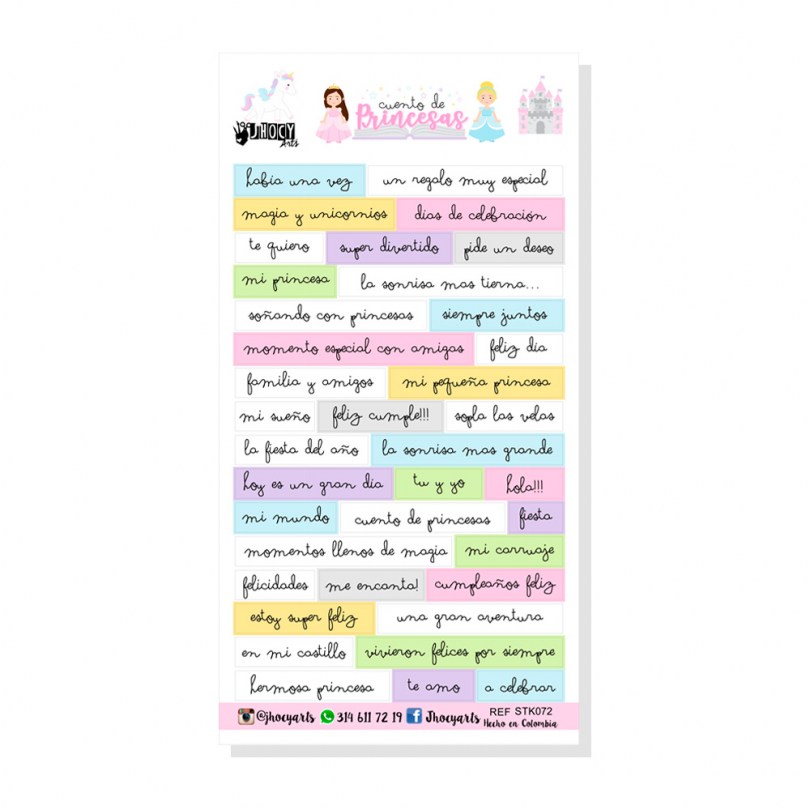 JHOCY
Arts
cuento de
Princesas
había una vez un regalo muy especial
magia y unicornios días de celebración
te quiero super divertido pide un deseo
mi princesa la sonrisa mas tierna...
soñando con princesas siempre juntos
momento especial con amigas feliz dia
familia y amigos mi pequeña princesa
mi sueño feliz cumple!!! sopla las velas
la fiesta del año la sonrisa mas grande
hoy es un gran día tu y yo hola!!!
mi mundo cuento de princesas fiesta
momentos llenos de magia mi carruaje
felicidades me encanta! cumpleaños feliz
estoy super feliz una gran aventura
en mi castillo vivieron felices por siempre
hermosa princesa te amo a celebrar
@jhocyarts 314 611 72 19 Jhocyarts REF STK072
Hecho en Colombia